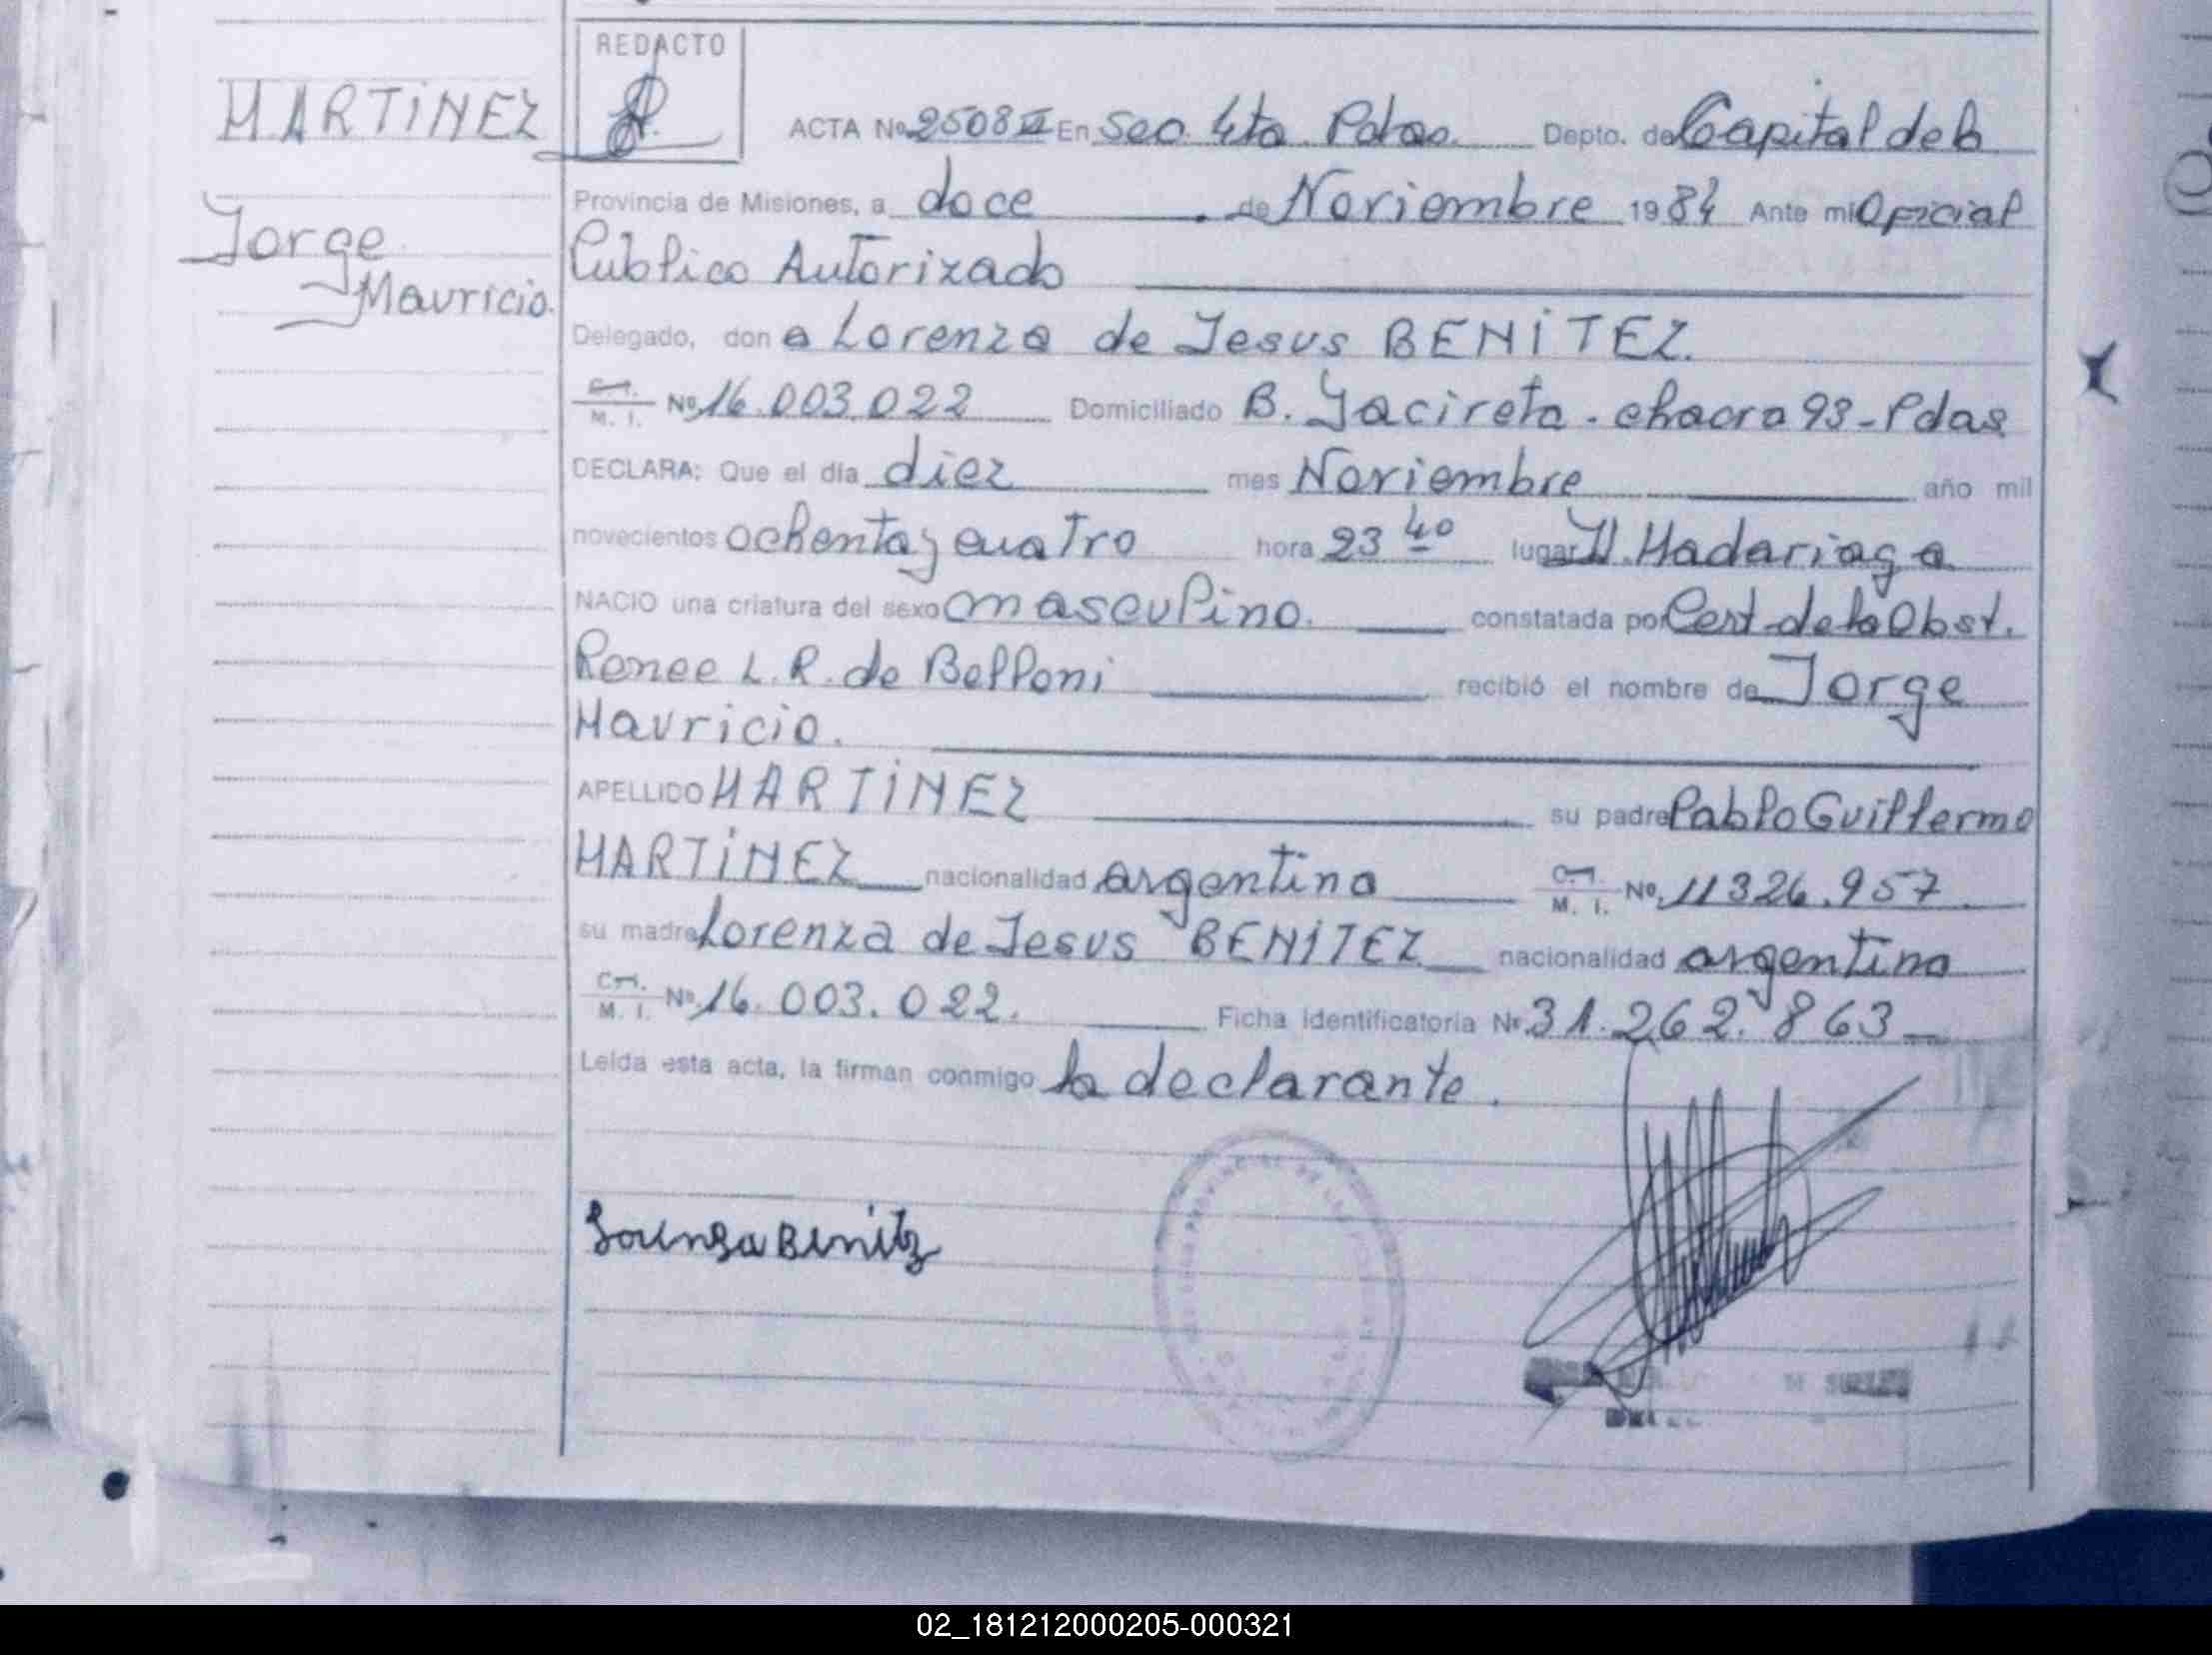 REDACTO
MARTINEZ
Jorge
Mauricio.
ACTA Nº 2508 II En Sec. 4ta Pdas. Depto. de Capital de la
Provincia de Misiones, a doce de Noviembre 1984 Ante mi Oficial
Publico Autorizado
Delegado, don a Lorenza de Jesus BENITEZ.
M. I. Nº 16.003.022 Domiciliado B. Yacireta - chacra 93 - Pdas
DECLARA: Que el día diez mes Noviembre año mil
novecientos ochenta y cuatro hora 23 40 lugar H. Madariaga
NACIO una criatura del sexo masculino. constatada por Cert. de la Obst.
Renee L. R. de Belloni recibió el nombre de Jorge
Mauricio.
APELLIDO MARTINEZ su padre Pablo Guillermo
MARTINEZ nacionalidad argentina M. I. Nº 11326.957
su madre Lorenza de Jesus BENITEZ nacionalidad argentina
M. I. Nº 16.003.022. Ficha Identificatoria Nº 31.262.863
Leída esta acta, la firman conmigo la declarante.
Lorenza Benitez
02_181212000205-000321